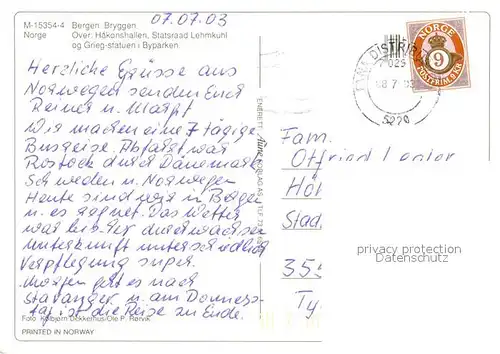 M-15354-4 Bergen. Bryggen.
Norge Over: Håkonshallen, Statsraad Lehmkuhl
og Grieg-statuen i Byparken.
07.07.03
Herzliche Grüsse aus
Norwegen senden Euch
Reiner u.
Wir machen eine 7 tägige
Busreise. Abfahrt war
Rostock durch Dänemark
Schweden u. Norwegen
Heute sind wir in Bergen
u. es regnet. Das Wetter
war bisher durchwachsen
Unterkunft unterschiedlich
Verpflegung super.
Morgen geht es nach
Stavanger u. am Donners-
tag ist die Reise zu Ende.
Foto: Ole P. Rørvik
PRINTED IN NORWAY
ENERETT:
FORLAG AS
NORGE
9
POSTFRIM. 9 KR
7025
08 7 03
5220
Fam.
Otfried
Stad
355
privacy protection
Datenschutz